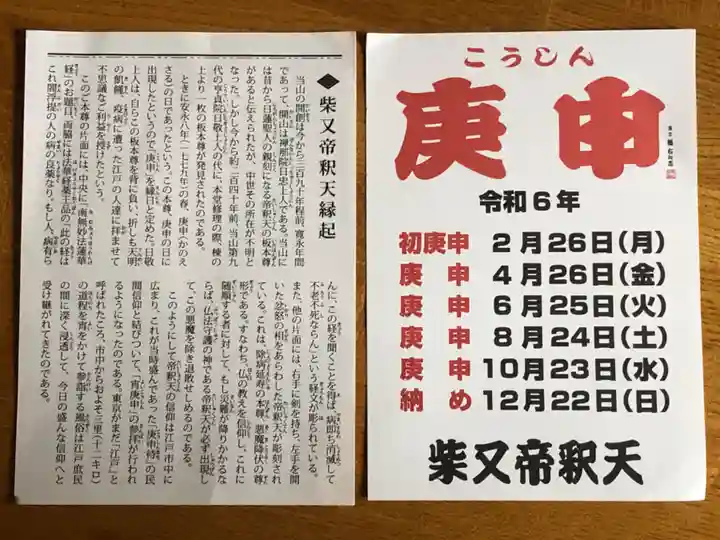 柴又帝釈天縁起
当山の開創は今から三百九十年程前、寛永年間
であって、開山は禅那院日忠上人である。当山に
は昔から日蓮聖人の親刻になる帝釈天の板本尊
があると伝えられたが、中世その所在が不明と
なった。しかし今から約二百四十年前、当山第九
代の亨貞院日敬上人の代に、本堂修理の際、棟の
上より一枚の板本尊が発見されたのである。
ときに安永八年(一七七九年)の春、庚申(かのえ
さる)の日であったという。この本尊、庚申の日に
出現したというので「庚申」を縁日と定めた。日敬
上人は、自らこの板本尊を背に負い、折しも天明
の飢饉、疫病に遭った江戸の人達に拝ませて
不思議なご利益を授けたという。
このご本尊の片面には、中央に「南無妙法蓮華
経」のお題目、両脇には法華経薬王品の「此の経は
これ閻浮提の人の病の良薬なり。もし人、病有ら
んに、この経を聞くことを得ば、病即ち消滅して
不老不死ならん」という経文が彫られている。
また、他の片面には、右手に剣を持ち、左手を開
いた忿怒の相をあらわした帝釈天が彫刻され
ている。これは、除病延寿の本尊、悪魔降伏の尊
形である。すなわち、仏の教えを信仰し、これに
随順する者に対して、もし災難が降りかかるな
らば、仏法守護の神である帝釈天が必ず出現し
て、この悪魔を除き退散せしめるのである。
このようにして帝釈天の信仰は江戸市中に
広まり、これが当時盛んであった「庚申待」の民
間信仰と結びついて、「宵庚申」の参拝が行われ
るようになったのである。東京がまだ「江戸」と
呼ばれたころ、市中からおよそ三里(十二キロ)
の道程を宵をかけて参詣する風俗は江戸庶民
の間に深く浸透して、今日の盛んな信仰へと
受け継がれてきたのである。
こうしん
庚申
令和6年
初庚申 2月26日(月)
庚申 4月26日(金)
庚申 6月25日(火)
庚申 8月24日(土)
庚申 10月23日(水)
納め 12月22日(日)
柴又帝釈天